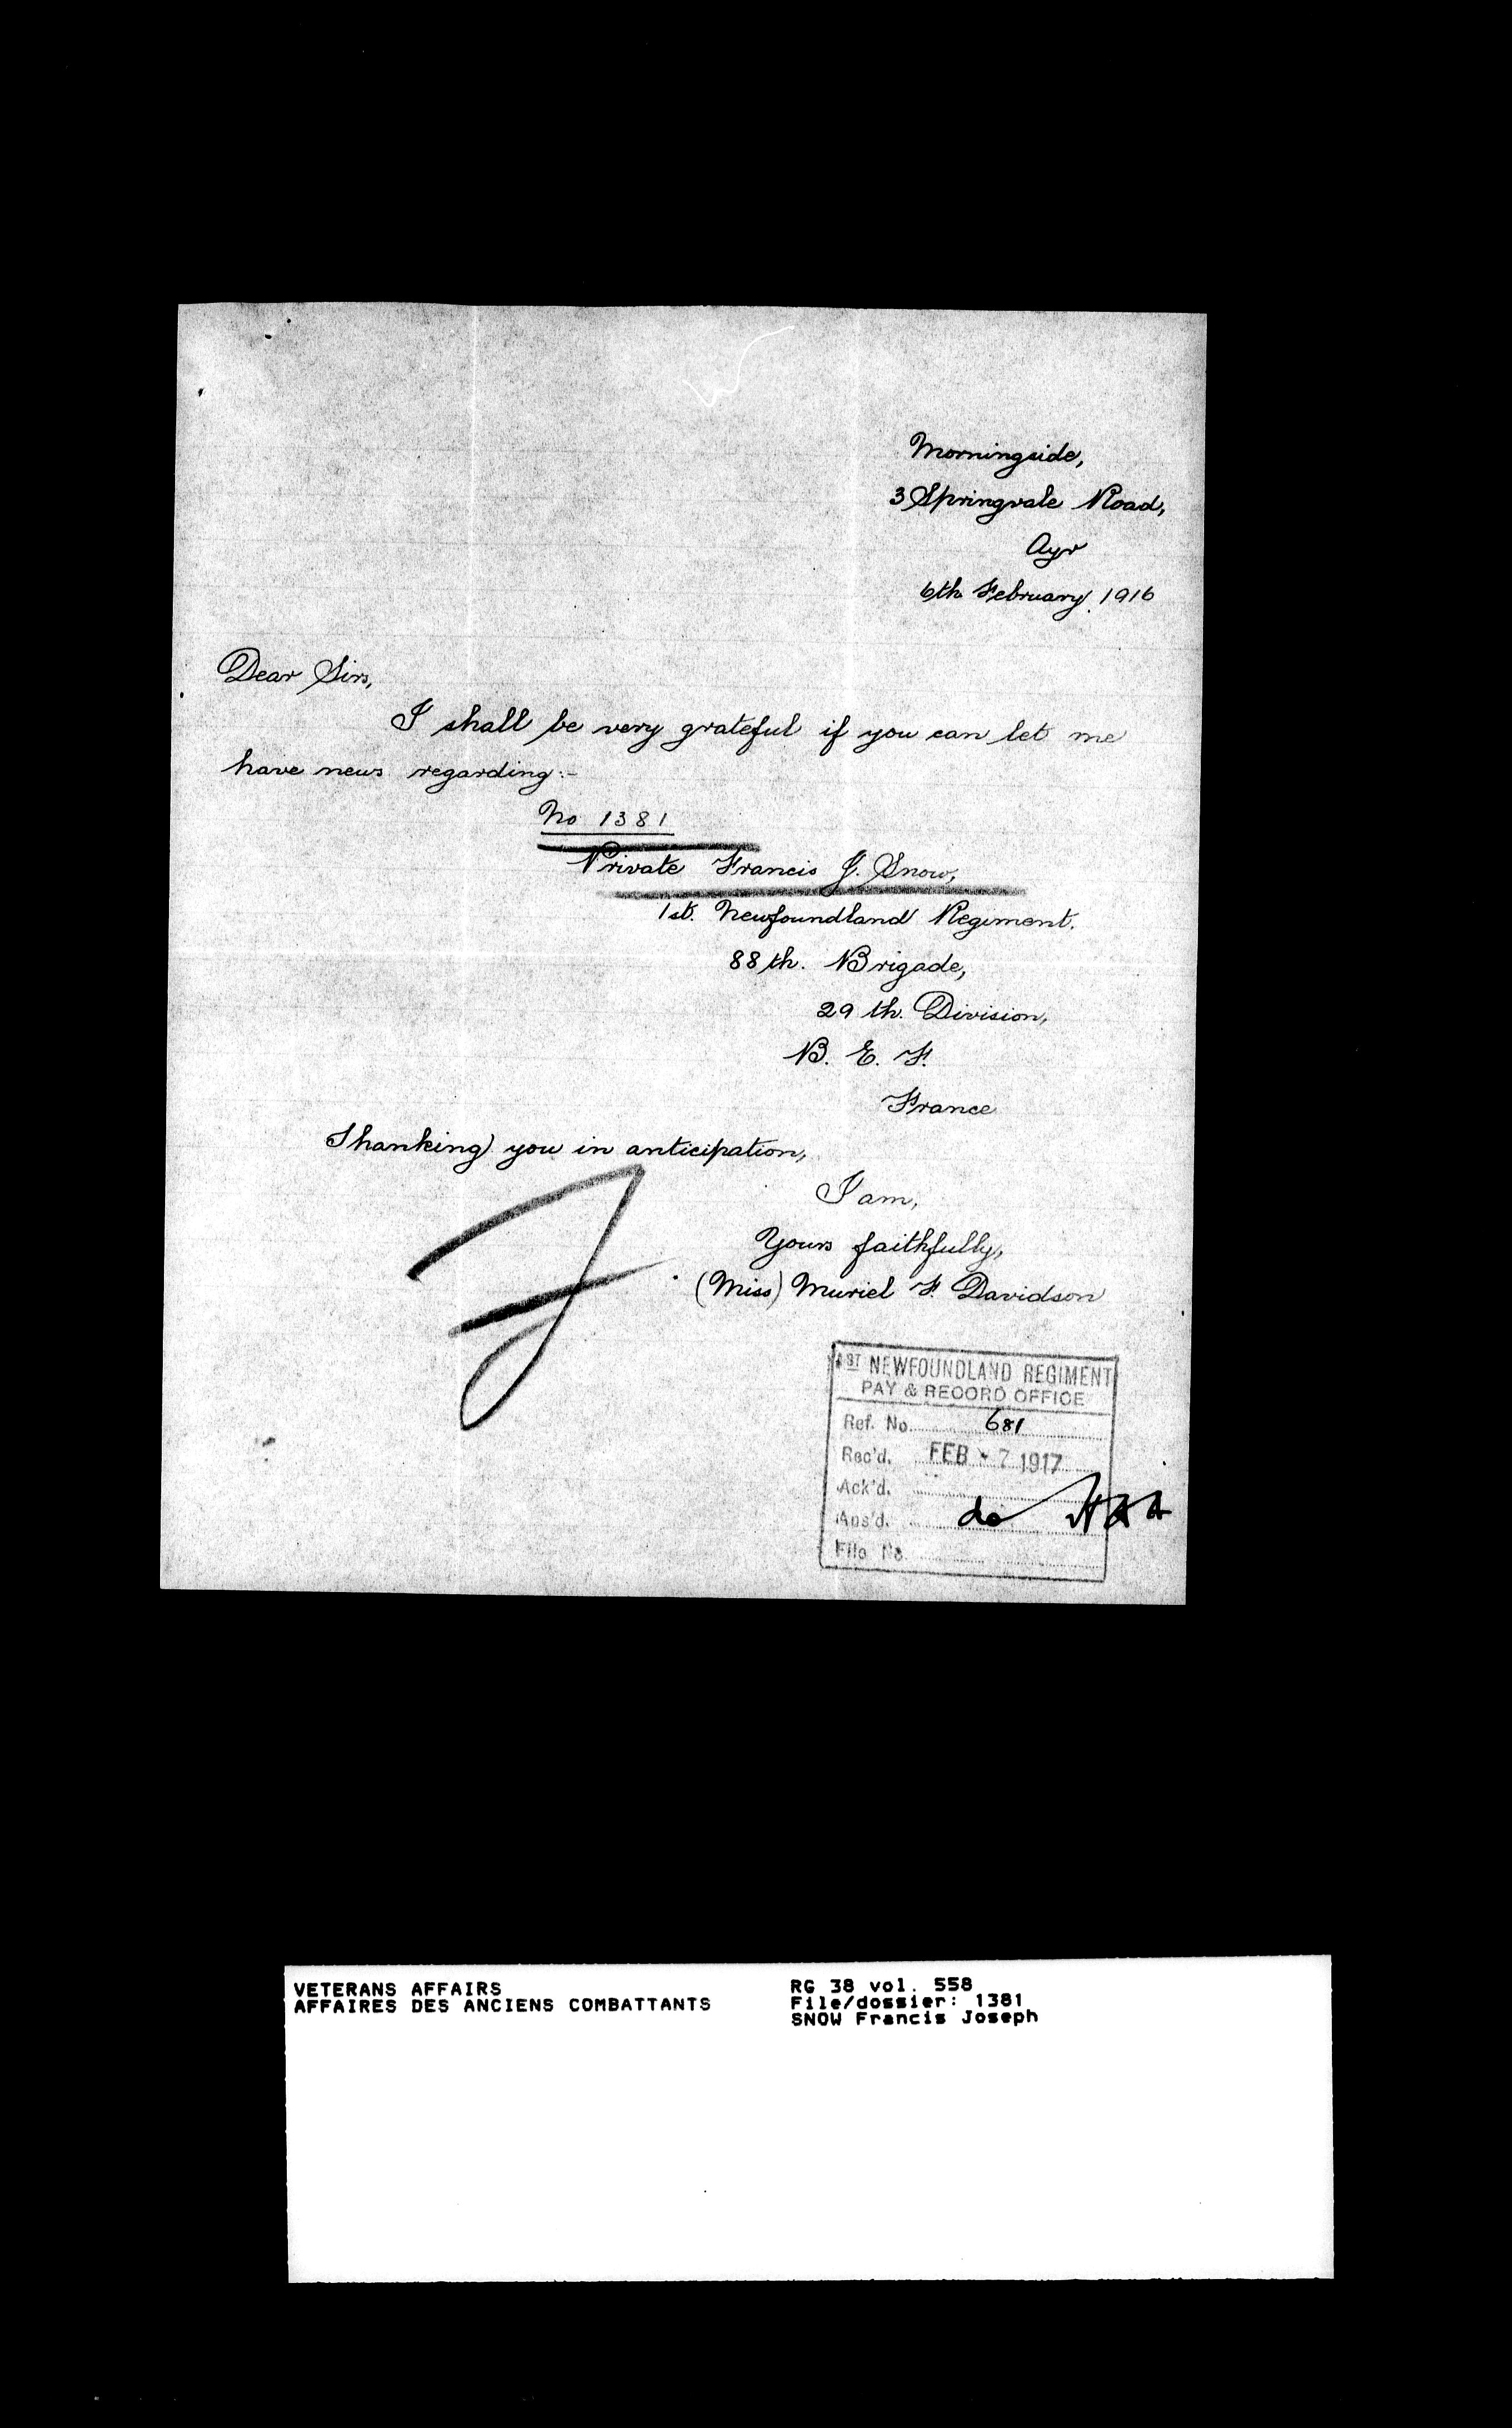 Morningside,
3 Springvale Road,
Ayr
6th February, 1916
Dear Sirs,
I shall be very grateful if you can let me
have news regarding:-
No 1381
Private Francis J. Snow,
1st. Newfoundland Regiment.
88th. Brigade,
29th. Division,
B. E. F.
France
Thanking you in anticipation,
I am,
Yours faithfully,
(Miss) Muriel F. Davidson
1ST NEWFOUNDLAND REGIMENT
PAY & RECORD OFFICE
Ref. No. 681
Rec'd. FEB - 7 1917
Ack'd.
Ans'd. do
File No.
VETERANS AFFAIRS
AFFAIRES DES ANCIENS COMBATTANTS
RG 38 vol. 558
File/dossier: 1381
SNOW Francis Joseph